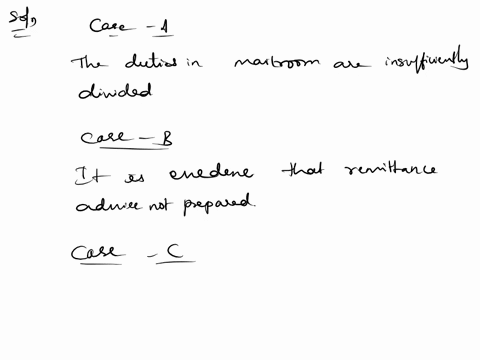 Sol,
Case - A
The duties in mailroom are insufficiently
divided
Case - B
It is enedene that remittance
advice not prepared.
Case - C